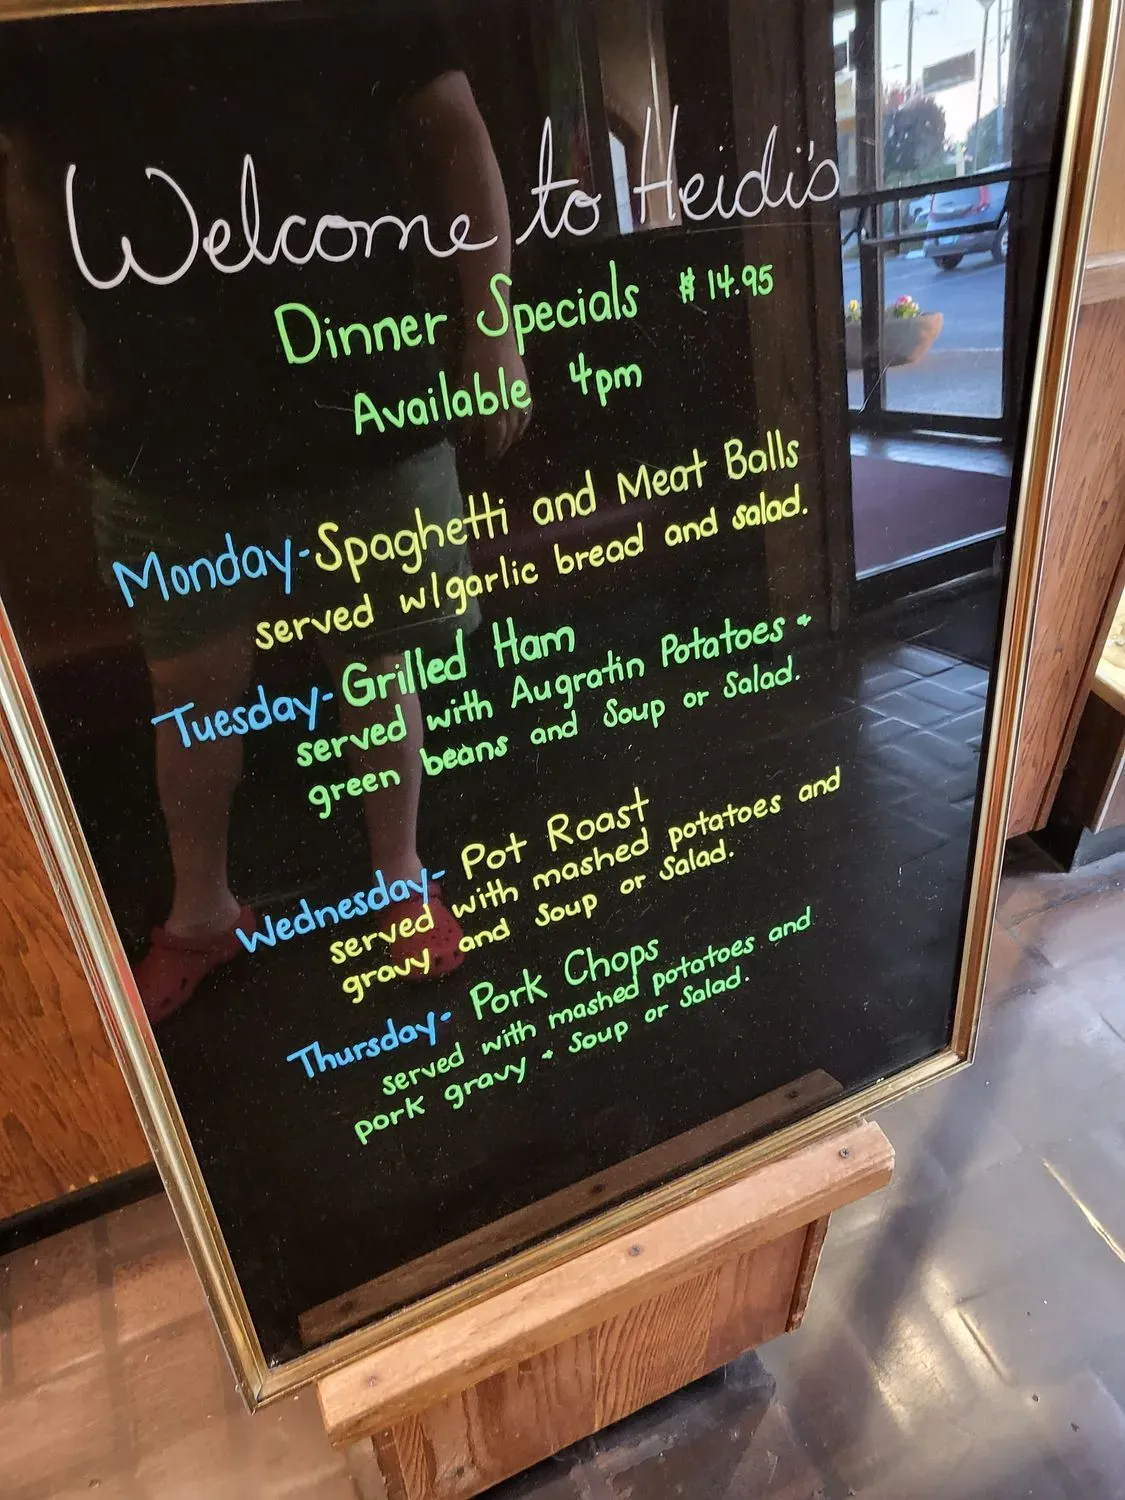 Welcome to Heidi's
Dinner Specials $14.95
Available 4pm
Monday-Spaghetti and Meat Balls
served w/garlic bread and salad.
Tuesday-Grilled Ham
served with Augratin Potatoes +
green beans and Soup or Salad.
Wednesday-Pot Roast
served with mashed potatoes and
gravy and Soup or Salad.
Thursday-Pork Chops
served with mashed potatoes and
pork gravy + Soup or Salad.